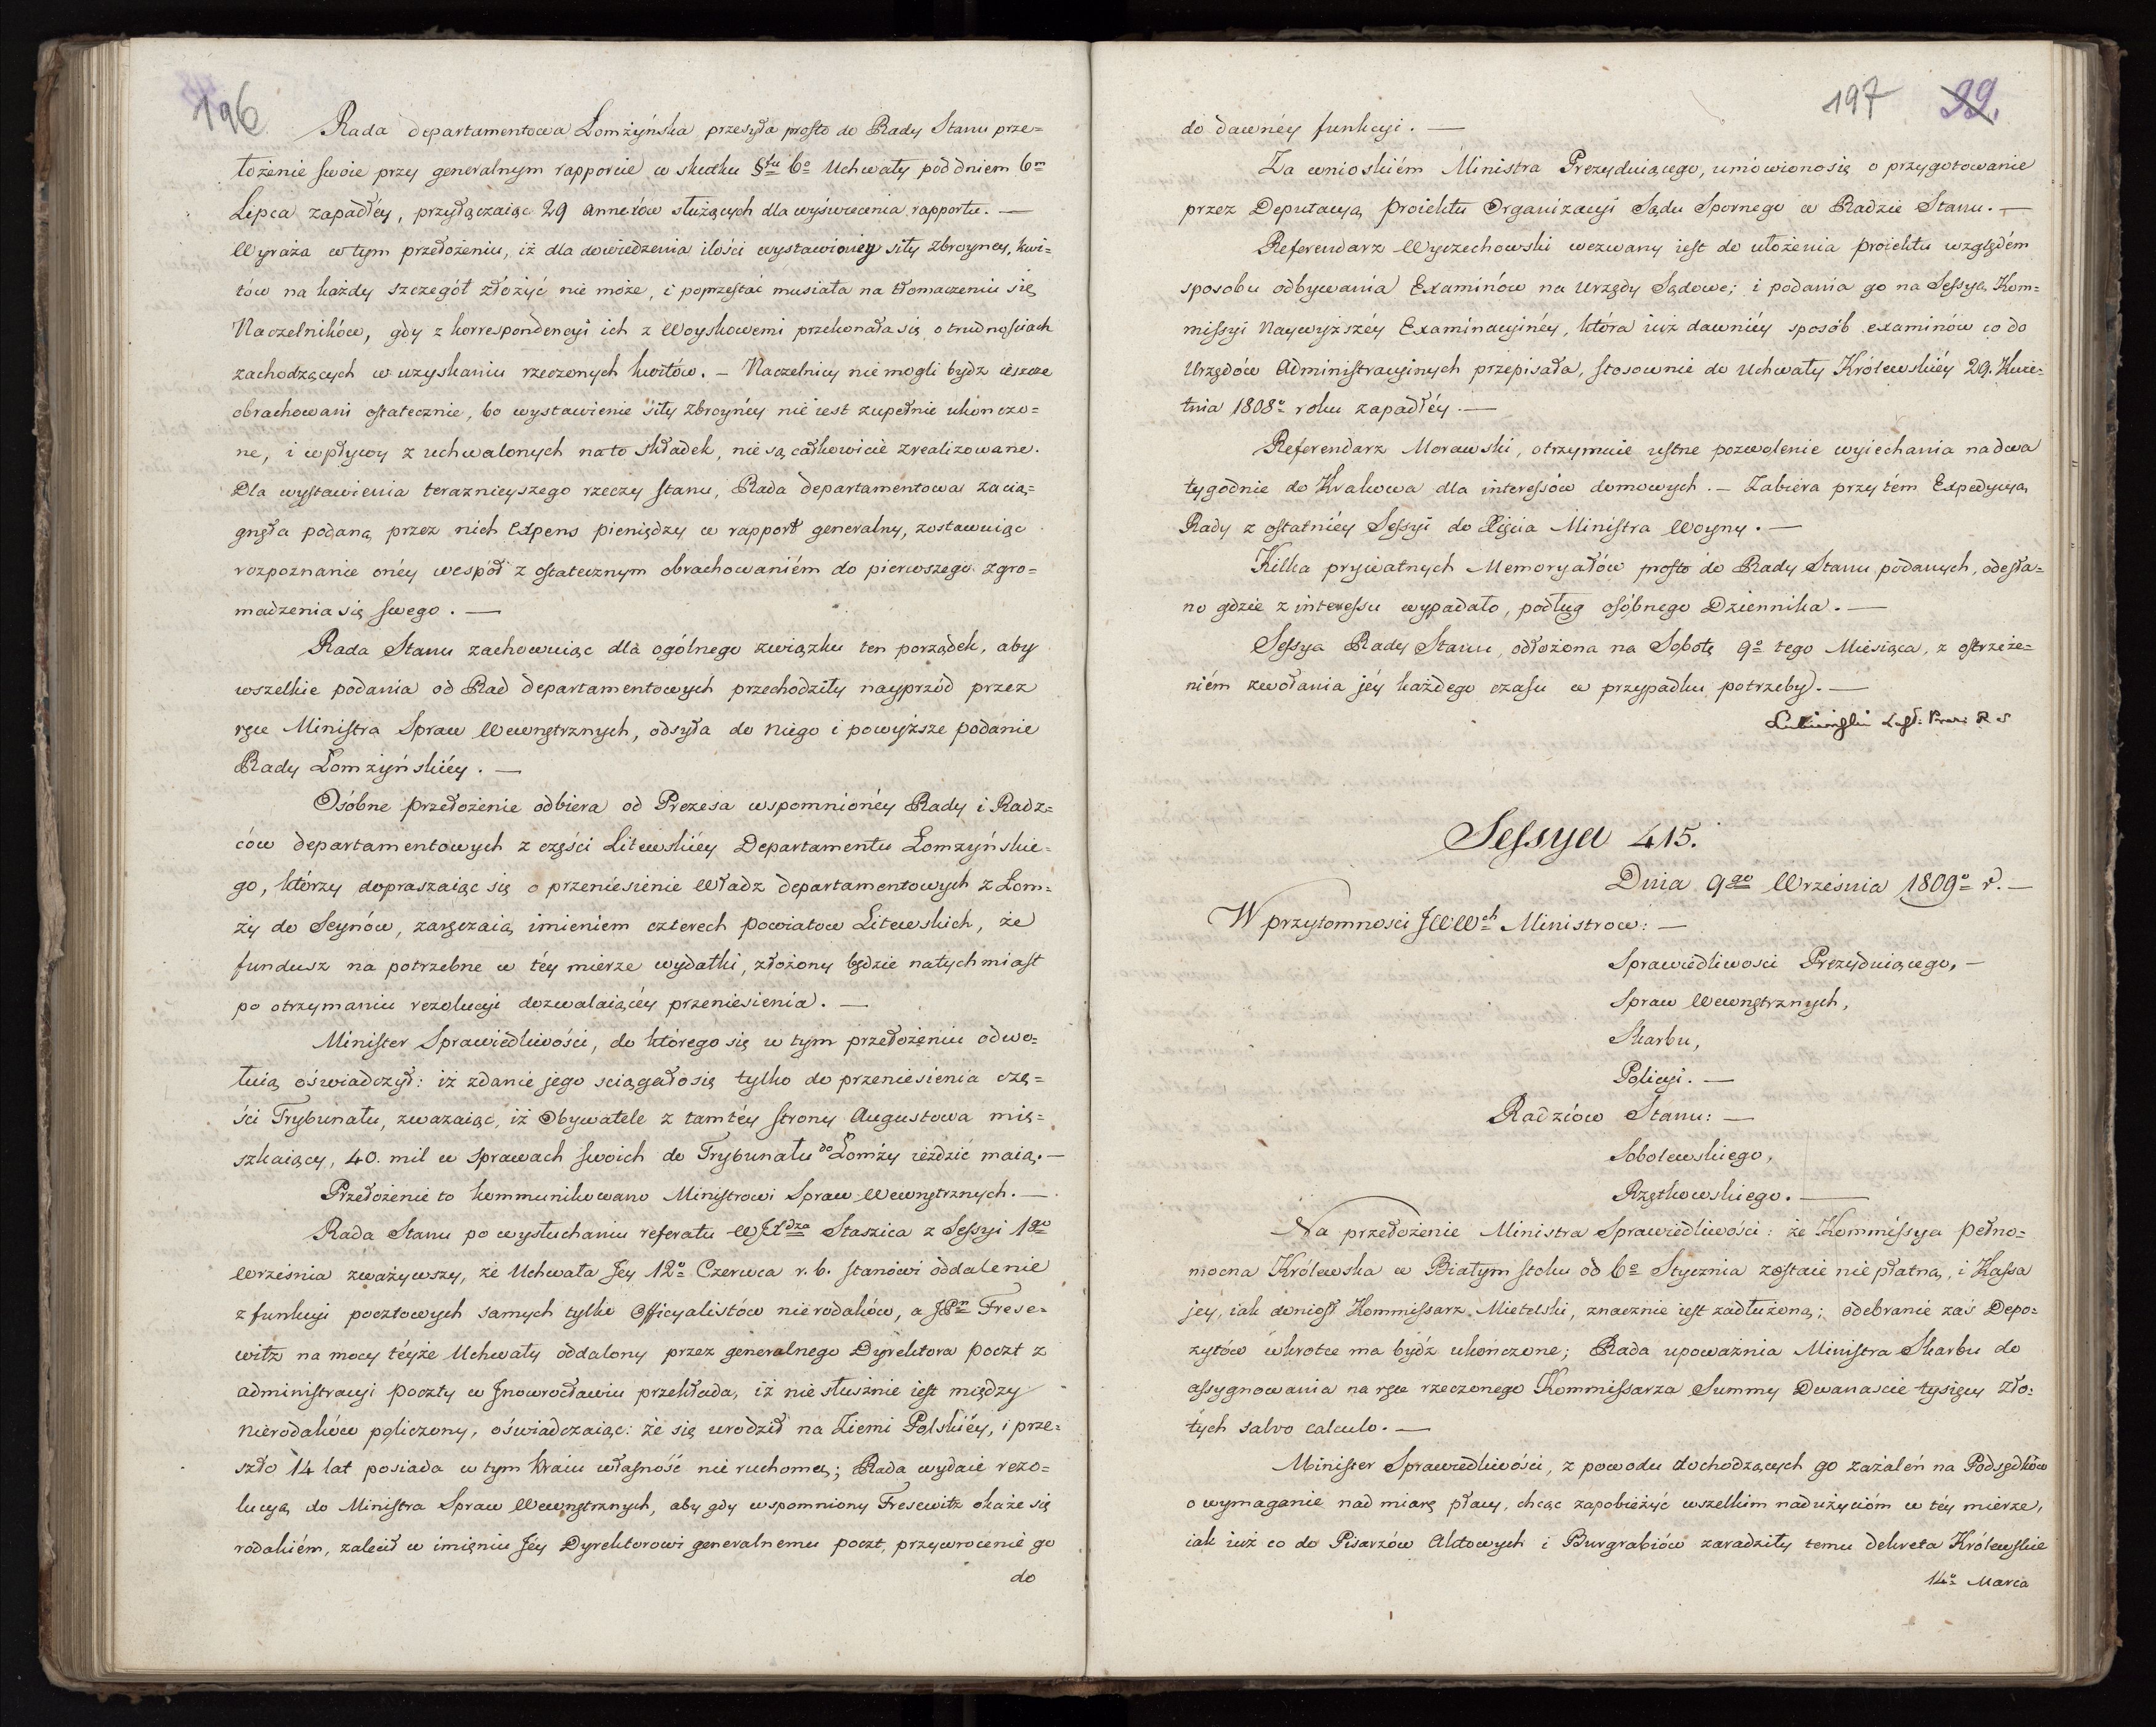 196
Rada departamentowa Łomżyńska przesyła prosto do Rady Stanu prze=
łożenie swoie przy generalnym rapporcie w skutku §fu 6o Uchwały pod dniem 6m
Lipca zapadłéy, przyłączaiąc 29 annexów służących dla wyświecenia rapportu. —
Wyraża w tym przełożeniu, iż dla dowiedzenia ilości wystawioney siły zbroyney, kwi=
tów na każdy szczegół złożyć nie może, i poprzestać musiała na tłomaczeniu się
Naczelników, gdy z korrespondencyi ich z Woyskowemi przekonała się o trudnościach
zachodzących w uzyskaniu rzeczonych kwitów. — Naczelnicy nie mogli bydz ieszcze
obrachowani ostatecznie, bo wystawienie siły zbroynéy nie iest zupełnie ukonczo=
ne, i wpływy z uchwalonych na to składek, nie są całkowicie zrealizowane.
Dla wystawienia teraznieyszego rzeczy stanu, Rada departamentowa zacią=
gnęła podaną przez nich Expens pieniędzy w rapport generalny, zostawuiąc
rozpoznanie onéy wespół z ostatecznym obrachowaniém do pierwszego zgro=
madzenia się swego. —
Rada Stanu zachowuiąc dla ogólnego związku ten porządek, aby
wszelkie podania od Rad departamentowych przechodziły nayprzód przez
ręce Ministra Spraw Wewnętrznych, odsyła do niego i powyższe podanie
Rady Łomżyńskiéy. —
Osóbne przełożenie odbiera od Prezesa wspomnionéy Rady i Radz=
ców departamentowych z części Litewskiéy Departamentu Łomżyńskie=
go, którzy dopraszaiąc się o przeniesienie Władz departamentowych z Łom=
ży do Seynów, zaręczaią imieniem czterech powiatow Litewskich, że
fundusz na potrzebne w téy mierze wydatki, złożony będzie natychmiast
po otrzymaniu rezolucyi dozwalaiącéy przeniesienia. —
Minister Sprawiedliwości, do którego się w tym przełożeniu odwo=
łuią oświadczył: iż zdanie jego sciągało się tylko do przeniesienia czę=
ści Trybunału, zważaiąc, iż Obywatele z tamtéy strony Augustowa mię=
szkaiący, 40. mil w sprawach swoich do Trybunału do Łomży ieździć maią. —
Przełożenie to kommunikowano Ministrowi Spraw Wewnętrznych. —
Rada Stanu po wysłuchaniu referatu WJXdza Staszica z Sessyi 1go
Września zważywszy, że Uchwała Jey 12o Czerwca r. b. stanówi oddalenie
z funkcyi pocztowych samych tylko Officyalistów nierodaków, a JPn Frese=
witz na mocy téyże Uchwały oddalony przez generalnego Dyrektora poczt z
administracyi poczty w Jnowrocławiu przekłada, iż nie słusznie iest między
nierodaków policzony, oświadczaiąc: że się urodził na Ziemi Polskiéy, i prze=
szło 14 lat posiada w tym kraiu własność nie ruchomą; Rada wydaie rezo=
lucyą do Ministra Spraw Wewnętrznych, aby gdy wspomniony Fresewitz okaże się
rodakiém, zalecił w imięniu Jéy Dyrektorowi generalnemu poczt, przywrocenie go
do
197 99.
do dawnéy funkcyi. —
Za wnioskiém Ministra Prezyduiącego, umówiono się o przygotowanie
przez Deputacyą proiektu Organizacyi Sądu Spornego w Radzie Stanu. —
Referendarz Wyczechowski wezwany iest do ułożenia proiektu względém
sposobu odbywania Examinów na Urzędy Sądowe; i podania go na Sessyą Kom=
missyi Naywyższéy Examinacyinéy, która iuż dawniéy sposób examinów co do
Urzędów Administracyinych przepisała, stosownie do Uchwały Królewskiéy 29. Kwie=
tnia 1808o roku zapadłéy. —
Referendarz Morawski, otrzymuie ustne pozwolenie wyiechania na dwa
tygodnie do Krakowa dla interessów domowych. — Zabiera przy tém Expedycyą
Rady z ostatniéy Sessyi do Xięcia Ministra Woyny. —
Kilka prywatnych Memoryałów prosto do Rady Stanu podanych, odesła=
no gdzie z interessu wypadało, podług osóbnego Dziennika. —
Sessya Rady Stanu, odłożona na Sobotę 9o tego Miesiąca, z ostrzeże=
niém zwołania jéy każdego czasu w przypadku potrzeby. —
Łubieński
Sessya 415.
Dnia 9go Września 1809o r. —
W przytomnosci JWWch Ministrow: —
Sprawiedliwosci Prezyduiącego, —
Spraw Wewnętrznych,
Skarbu,
Policyi. —
Radzców Stanu: —
Sobolewskiego,
Rzętkowskiego. —
Na przełożenie Ministra Sprawiedliwości: że Kommissya pełno=
mocna Królewska w Białym stoku od 6o Stycznia zostaie nie płatną, i Kassa
jey, iak doniosł Kommissarz Mietelski, znacznie iest zadłużoną; odebranie zaś Depo=
zytów wkrotce ma bydź ukończone; Rada upoważnia Ministra Skarbu do
assygnowania na ręce rzeczonego Kommissarza Summy Dwanascie tysięcy zło=
tych salvo calculo. —
Minister Sprawiedliwości, z powodu dochodzących go zażaleń na Podsędków
o wymaganie nad miarę płacy, chcąc zapobieżyć wszelkim nadużycióm w téy mierze,
iak iuż co do Pisarzów Aktowych i Burgrabiów zaradziły temu dekreta Królewskie
14o Marca